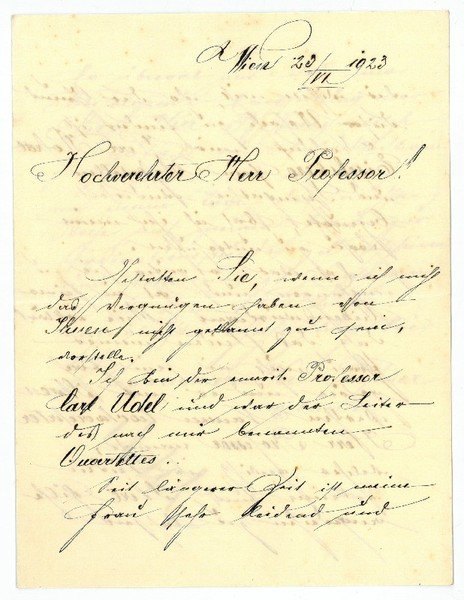 Wien 23/VI 1923
Hochverehrter Herr Professor!
Gestatten Sie, wenn ich mich
das Vergnügen haben von
Ihnen nicht gekannt zu sein,
vorstelle.
Ich bin der emerit. Professor
Carl Udel und war der Leiter
des nach mir benannten
Quartettes.
Seit längerer Zeit ist meine
Frau sehr leidend und